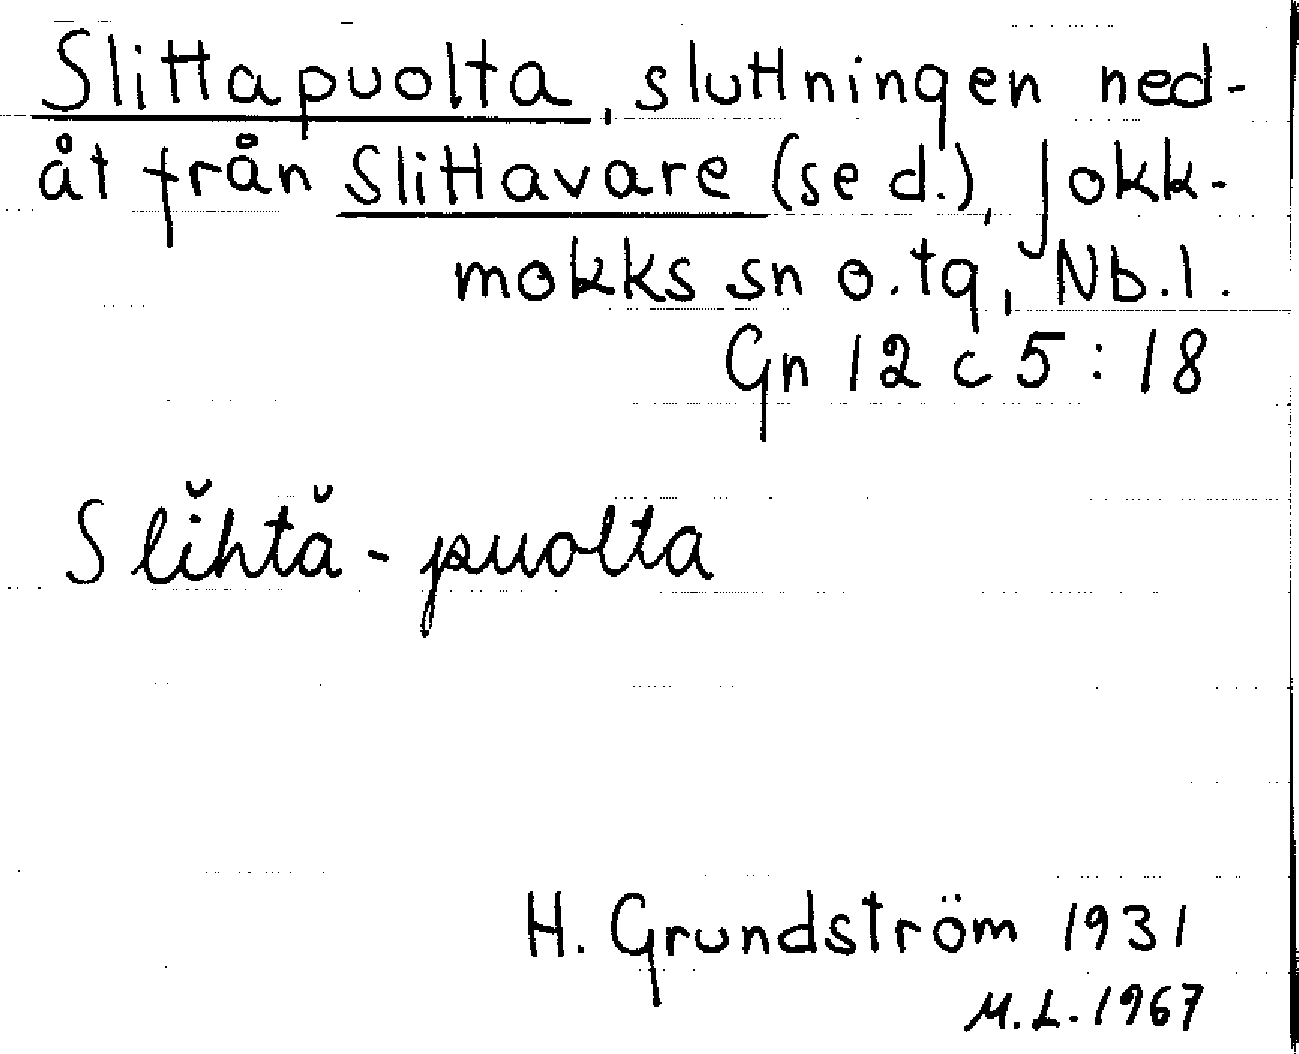 Slittapuolta, sluttningen ned-
åt från Slittavare (se d.), Jokk-
mokks sn o. tg, Nb. l.
Gn 12 c 5 : 18
Slĭhtă - puolta
H. Grundström 1931
M.L. 1967